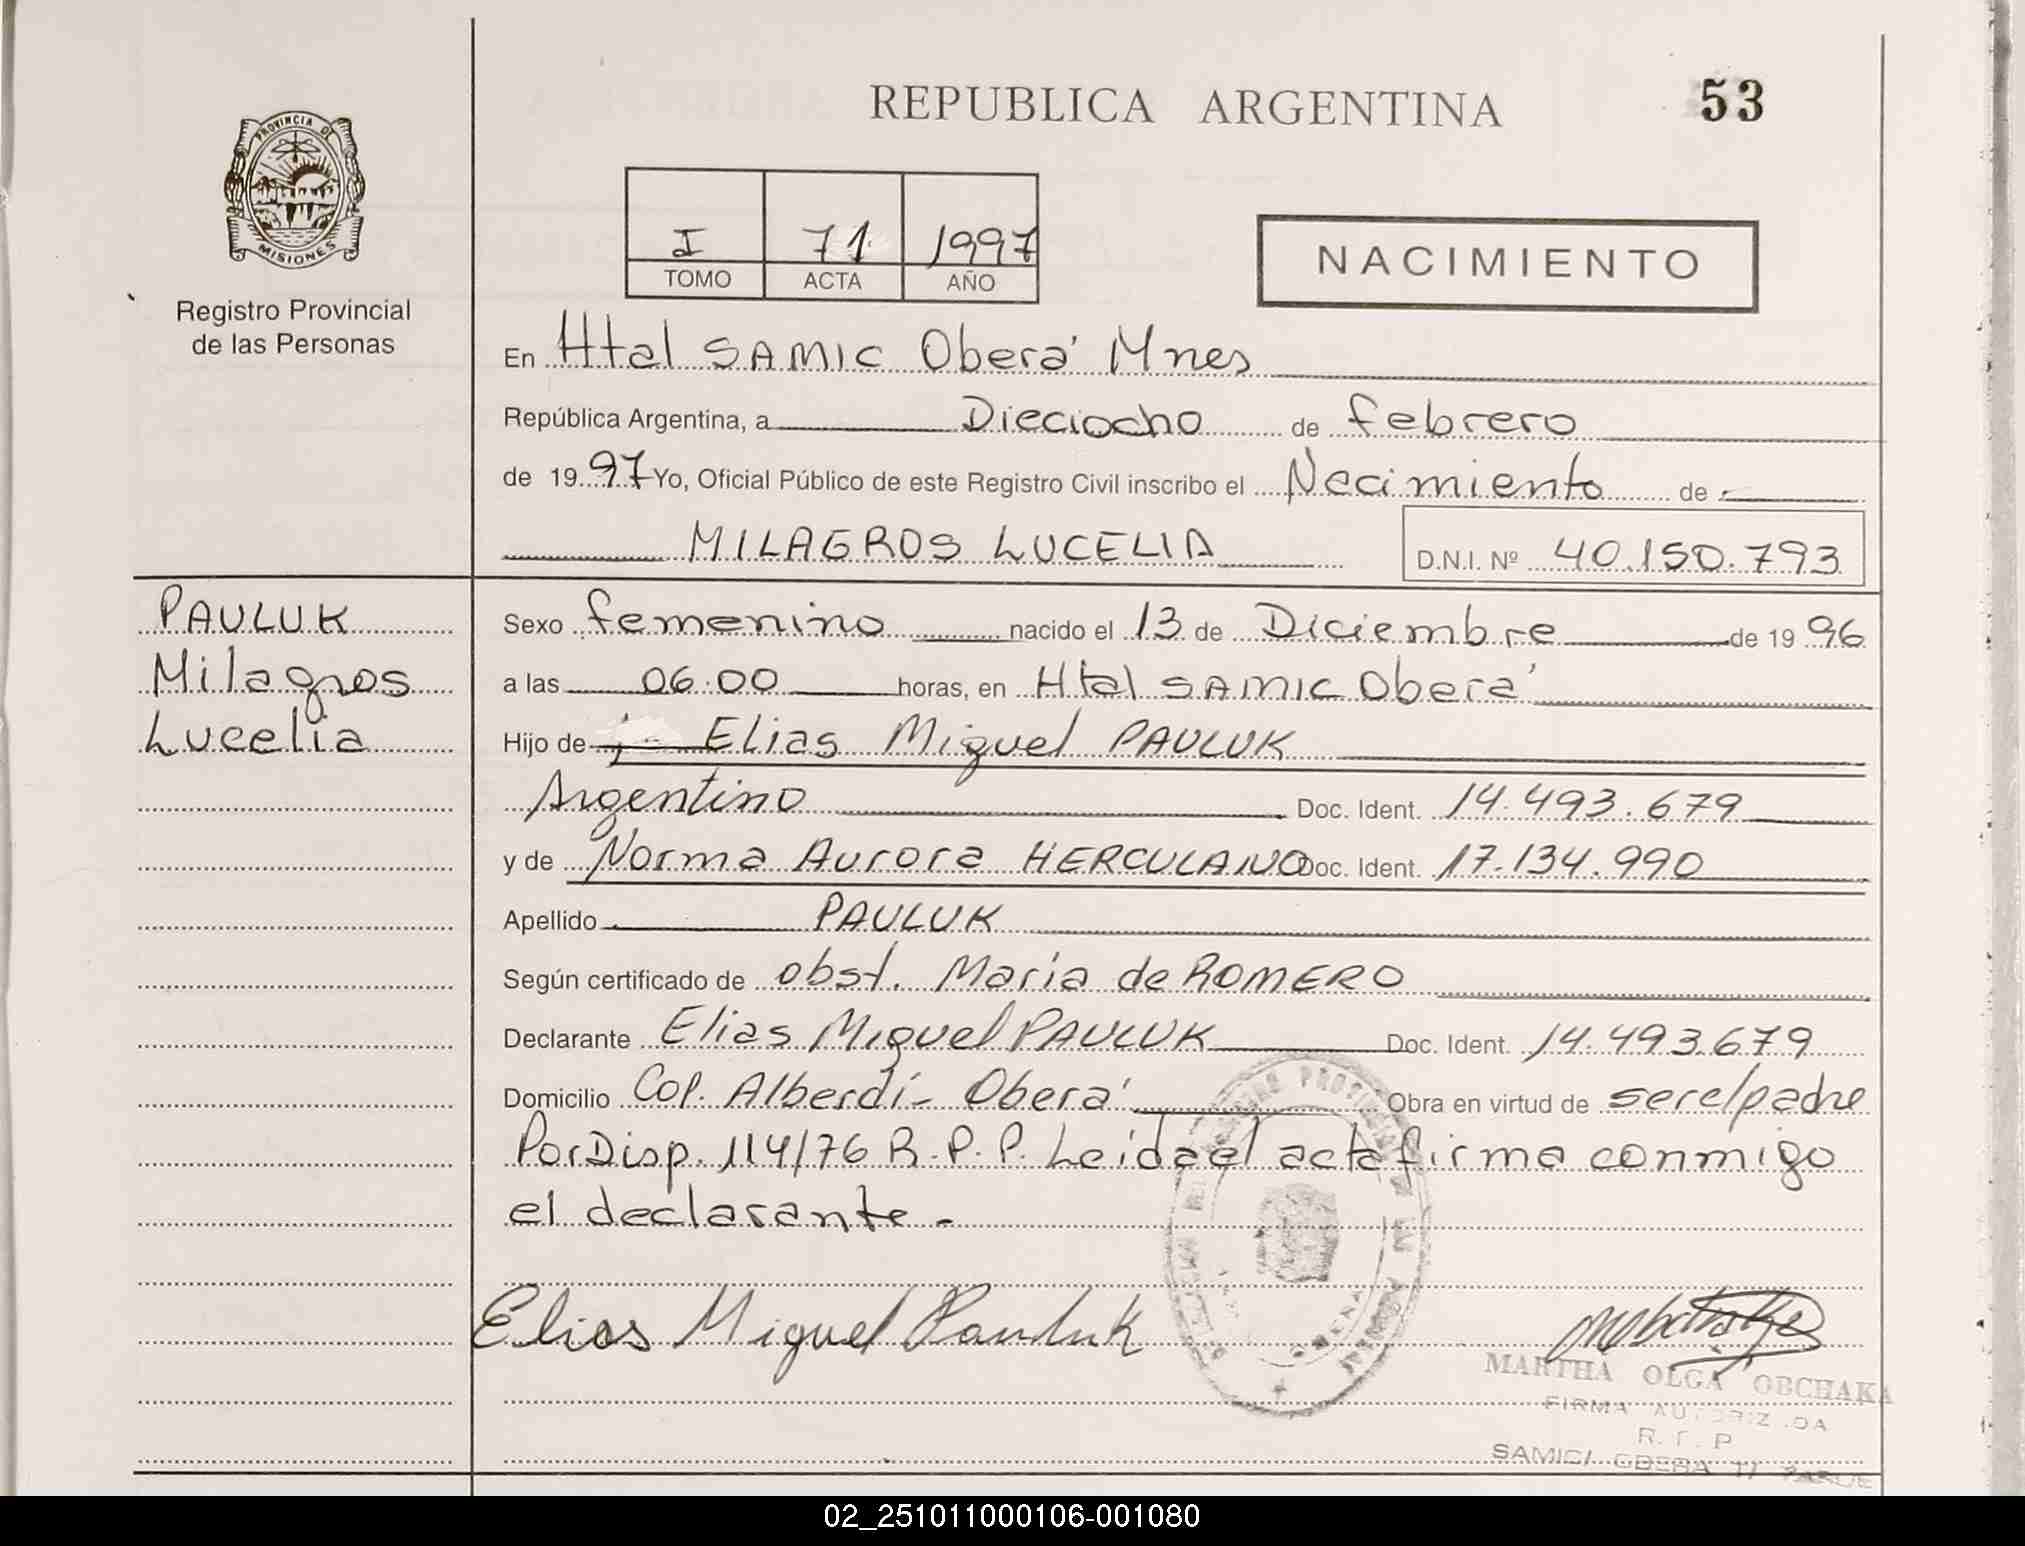 REPUBLICA ARGENTINA
53
PROVINCIA DE
MISIONES
Registro Provincial
de las Personas
I 71 1997
TOMO ACTA AÑO
NACIMIENTO
En Htal SAMIC Oberá Mnes
República Argentina, a Dieciocho de febrero
de 1997 Yo, Oficial Público de este Registro Civil inscribo el Nacimiento de
MILAGROS LUCELIA D.N.I. Nº 40.150.793
PAULUK
Milagros
Lucelia
Sexo femenino nacido el 13 de Diciembre de 1996
a las 06:00 horas, en Htal SAMIC Oberá
Hijo de Elias Miguel PAULUK
Argentino Doc. Ident. 14.493.679
y de Norma Aurora HERCULANO Doc. Ident. 17.134.990
Apellido PAULUK
Según certificado de obst. Maria de ROMERO
Declarante Elias Miguel PAULUK Doc. Ident. 14.493.679
Domicilio Col. Alberdi - Oberá Obra en virtud de ser el padre
Por Disp. 114/76 R.P.P. Leida el acta firma conmigo
el declarante.-
Elias Miguel Pauluk
MARTHA OLGA OBCHAKA
FIRMA AUTORIZADA
R.P.P
SAMIC OBERA
02_251011000106-001080